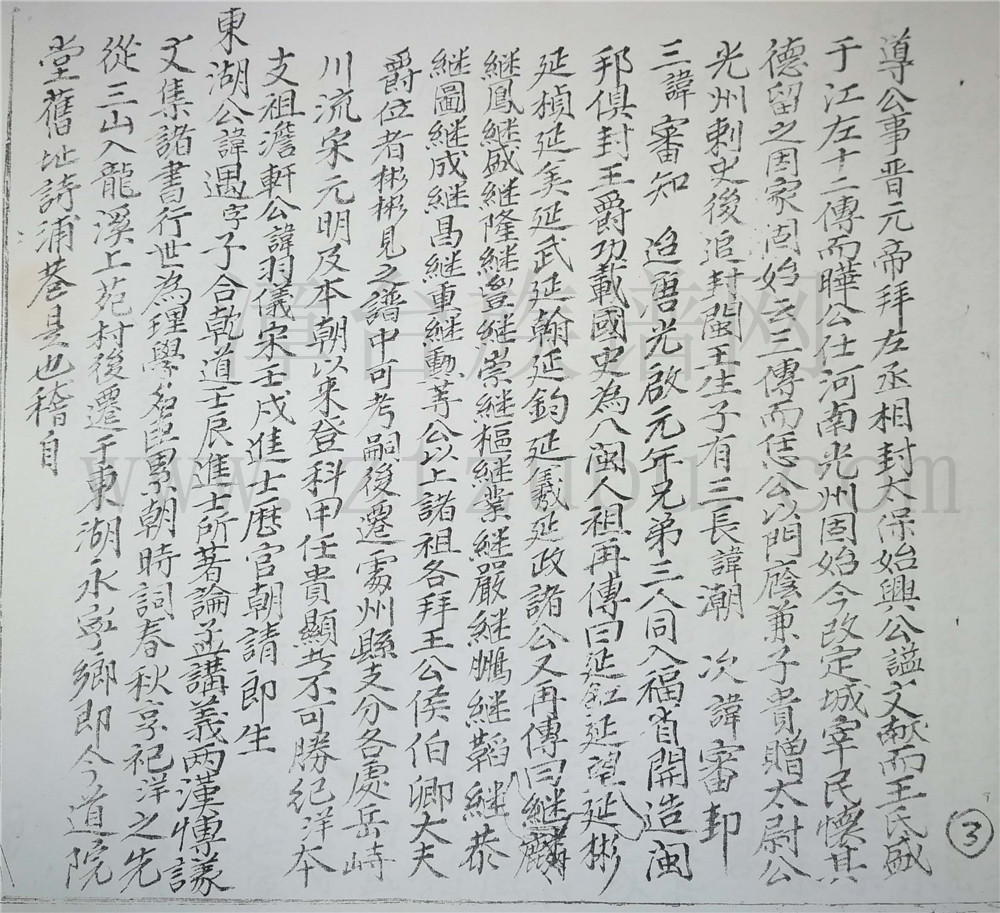 導公事晋元帝拜左丞相封太保始興公謚文献而王氏盛
于江左十二傳而曄公仕河南光州固始今改定城宰民懷其
德留之因家固始云三傳而恁公以門廕兼子貴贈太尉公
光州刺史後追封閩王生子有三長諱潮 次諱審邽
三諱審知 迨唐光啟元年兄弟三人同入福省開造閩
邦俱封王爵功載國史為八閩人祖再傳曰延紅延望延彬
延楨延美延武延翰延鈞延羲延政諸公又再傳曰継麟
継鳳継盛継隆継豈継崇継樞継業継嚴継鵬継韜継恭
継圖継成継昌継重継勳等公以上諸祖各拜王公侯伯卿大夫
爵位者彬彬見之譜中可考嗣後遷䖏州縣支分各處岳峙
川流宋元明及本朝以來登科甲任貴顯者不可勝紀洋本
支祖澹軒公諱羽儀宋壬戌進士歴官朝請即生
東湖公諱遇字子合乾道壬辰進士所著論孟講義兩漢博議
文集諸書行世為理學名臣累朝時詞春秋享祀洋之先
從三山入龍溪上苑村後遷于東湖永寧鄉即今道院
堂舊址詩浦巷是也稽自
3
漳台族譜网
www.ztzupu.com